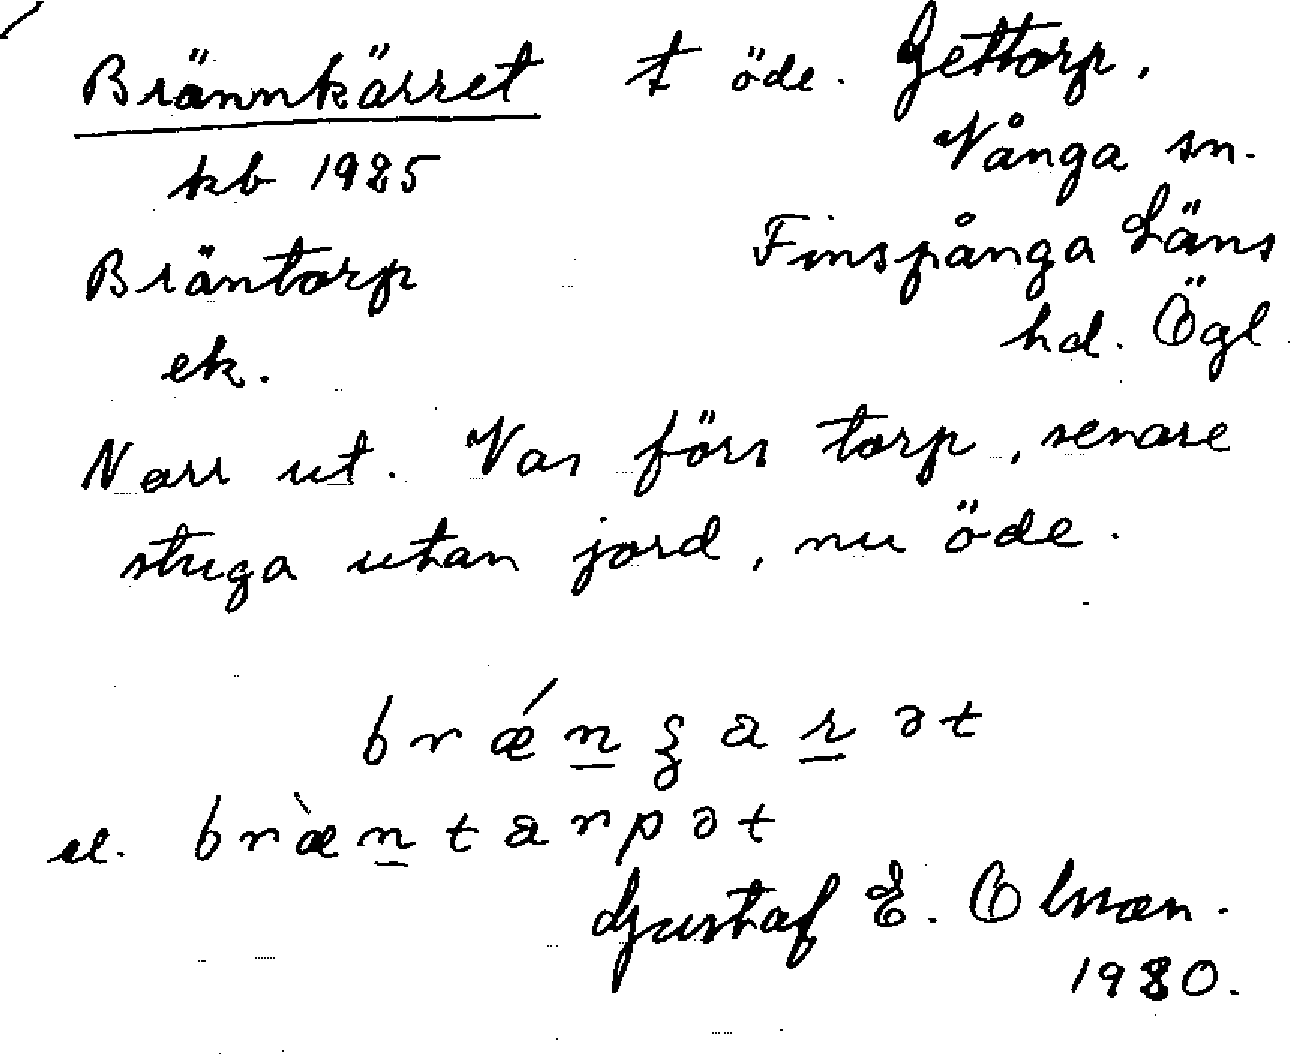 Brännkärret t öde. Gettorp,
kb 1925 Vånga sn.
Bräntorp Finspånga Läns
ek. hd. Ögl
Narr ut. Var förr torp, senare
stuga utan jord, nu öde.
brǽn̲ʒar̲ət
el. bræ̀n̲tarpət
Gustaf E. Olsson.
1980.